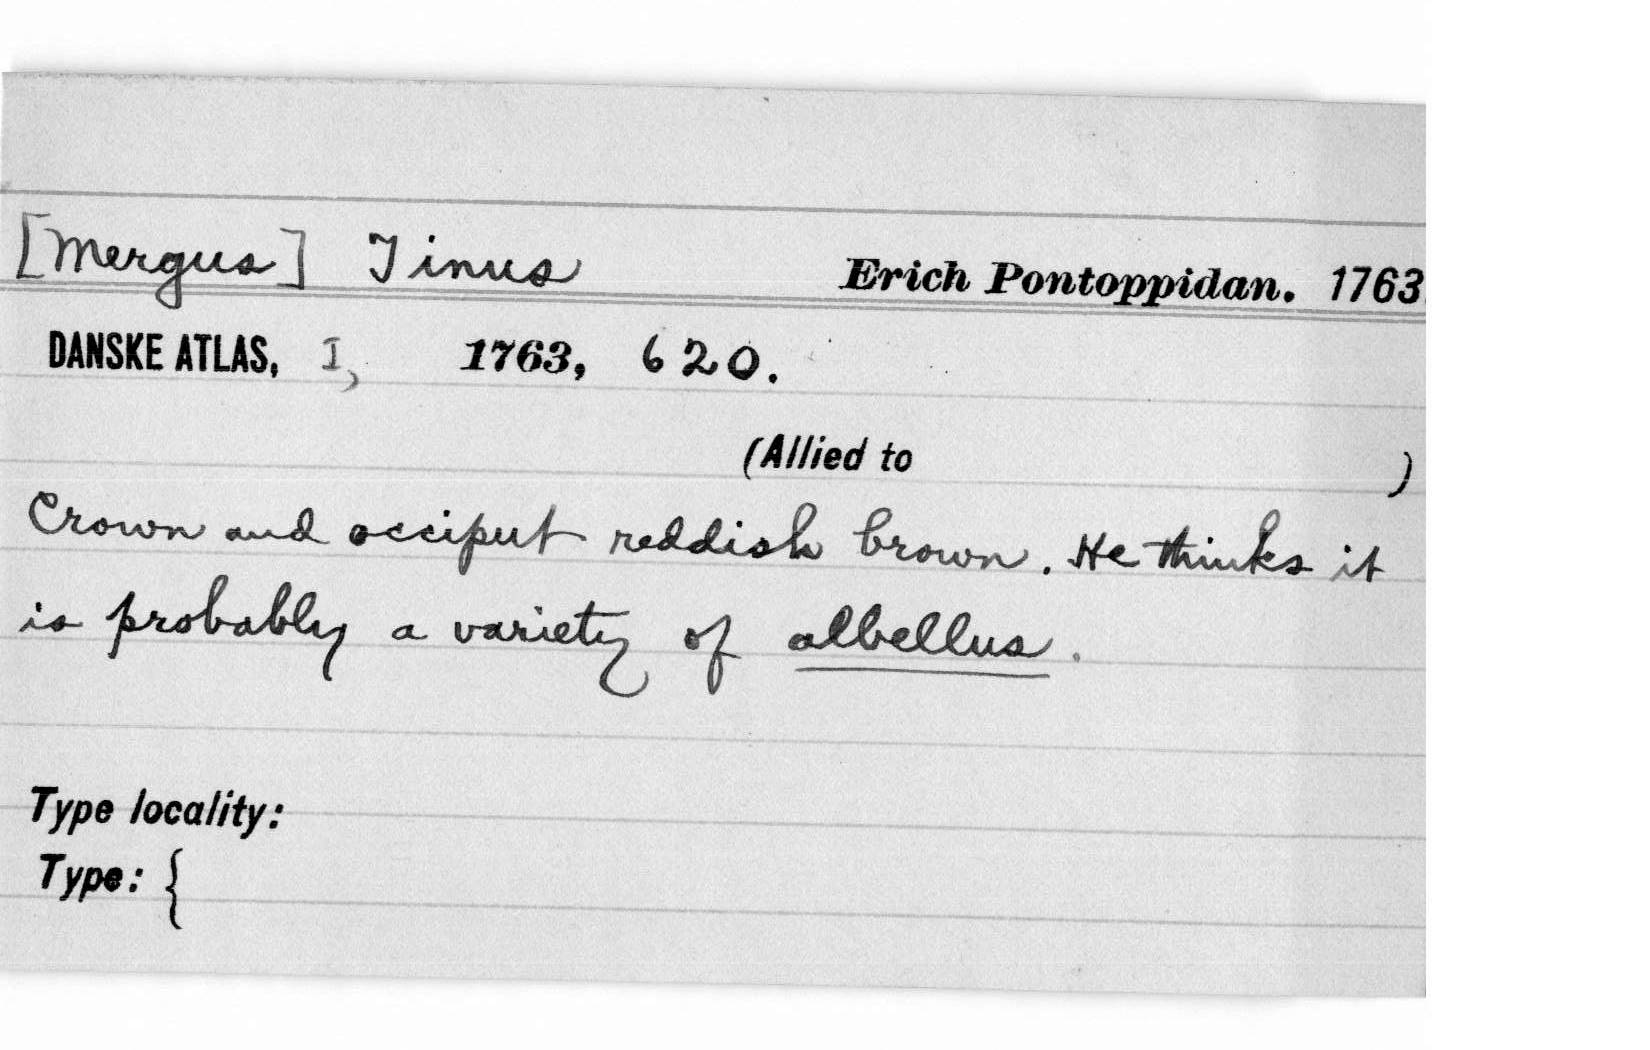 [Mergus] Tinus Erich Pontoppidan. 1763
DANSKE ATLAS, I, 1763, 620.
(Allied to )
Crown and occiput reddish brown. He thinks it
is probably a variety of albellus.
Type locality:
Type: {